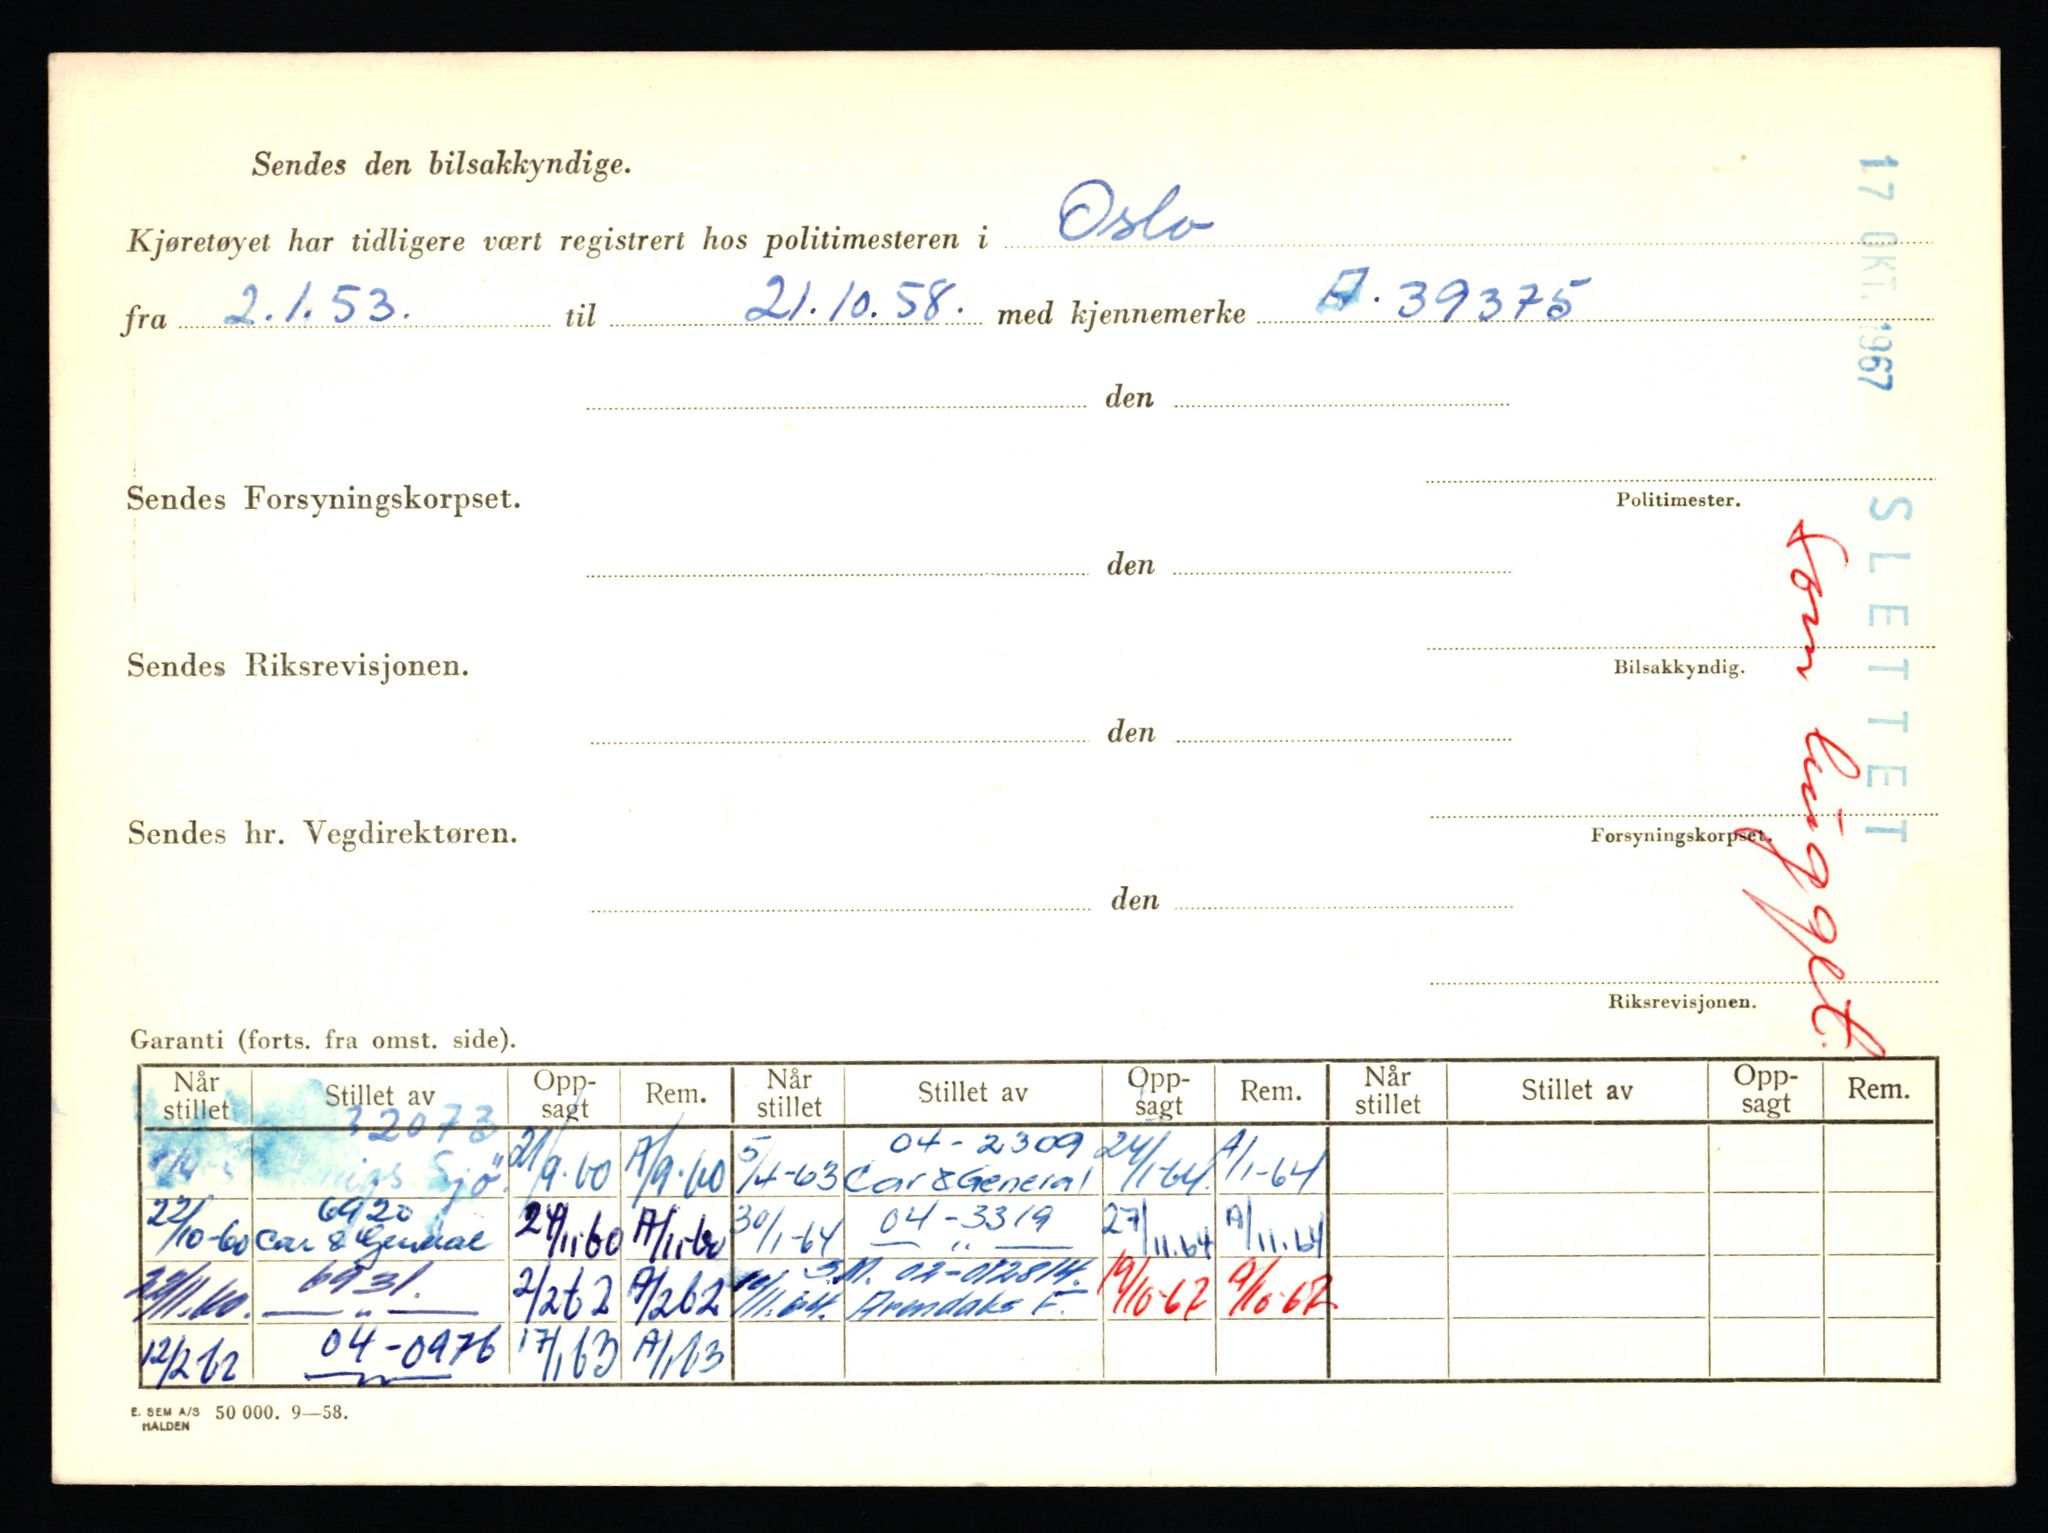 Sendes den bilsakkyndige.
Kjøretøyet har tidligere vært registrert hos politimesteren i Oslo
fra 2.1.53. til 21.10.58. med kjennemerke A. 39375
den
Politimester.
Sendes Forsyningskorpset.
den
Bilsakkyndig.
Sendes Riksrevisjonen.
den
Forsyningskorpset.
Sendes hr. Vegdirektøren.
den
Riksrevisjonen.
17 OKT. 1967 SLETTET
Som hugget.
Garanti (forts. fra omst. side).
Når stillet Stillet av Opp-sagt Rem. Når stillet Stillet av Opp-sagt Rem. Når stillet Stillet av Opp-sagt Rem.
32073 04-2309
Sjö. 21/9.60 A/9.60 5/4-63 Car & General 24/1-64. A/1-64
6920 04-3319
22/10-60 Car & General 24/11.60 A/11.60 30/1-64 — " — 27/11.64 A/11.64
6931. 02-012814.
29/11.60. — " — 2/2 62 A/2 62 Arendals F. 19/10-67 A/10-67
12/2 62 04-0976 17/1 63 A/1 63
— " —
E. SEM A/S HALDEN 50 000. 9—58.